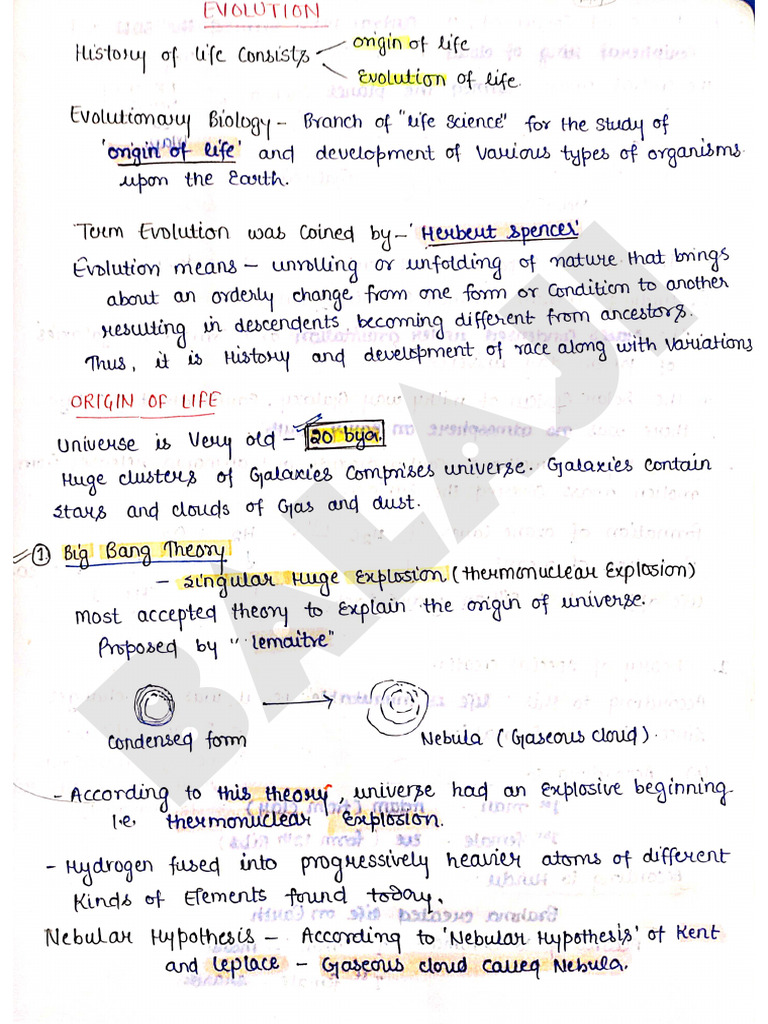 EVOLUTION
History of life Consists
origin of life
Evolution of life
Evolutionary Biology - Branch of "life science" for the study of
'origin of life' and development of various types of organisms
upon the Earth.
Term Evolution was coined by - 'Herbert Spencer'
Evolution means - unrolling or unfolding of nature that brings
about an orderly change from one form or condition to another
resulting in descendents becoming different from ancestors.
Thus, it is History and development of race along with variations
ORIGIN OF LIFE
Universe is very old - 20 bya.
Huge clusters of Galaxies Comprises universe. Galaxies contain
stars and clouds of Gas and dust.
① Big Bang Theory
- Singular Huge Explosion (thermonuclear Explosion)
most accepted theory to explain the origin of universe.
Proposed by "lemaitre"
Condensed form
Nebula (Gaseous cloud).
- According to this theory, universe had an explosive beginning
i.e. thermonuclear Explosion.
- Hydrogen fused into progressively heavier atoms of different
kinds of Elements found today.
Nebular Hypothesis - According to 'Nebular Hypothesis' of Kent
and leplace - Gaseous cloud called Nebula.
BALAJI